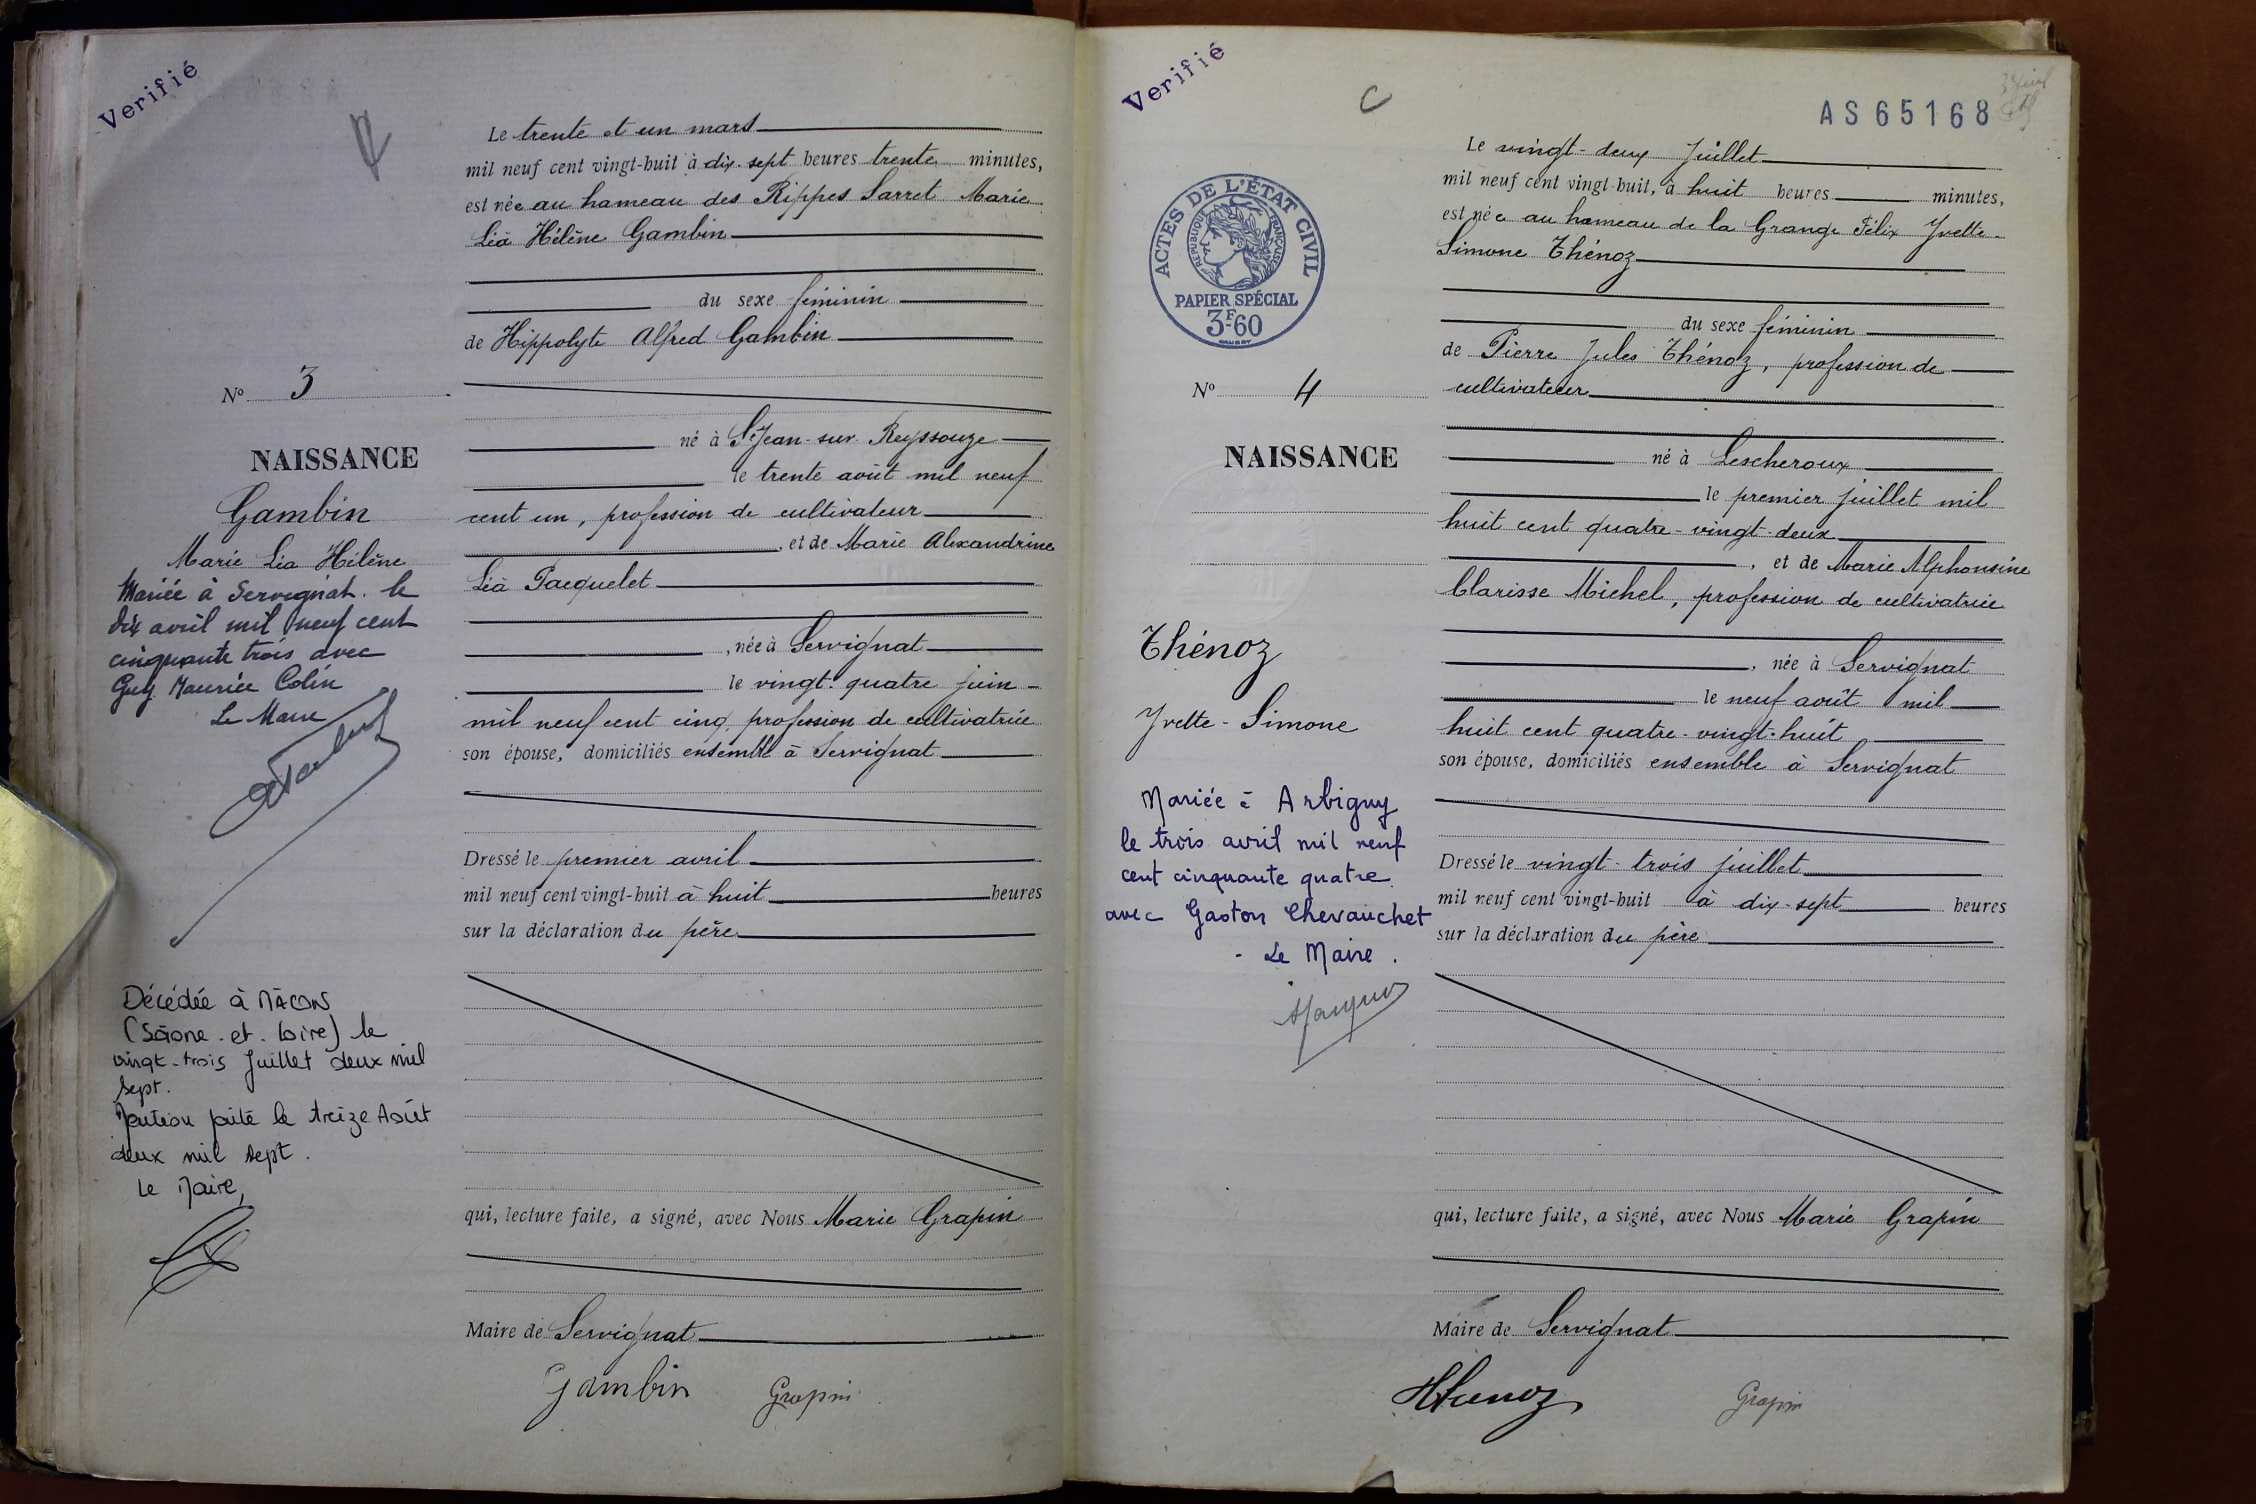 Verifié
N° 3
NAISSANCE
Gambin
Marie Léa Hélène
Mariée à Servignat le
dix avril mil neuf cent
cinquante trois avec
Guy Maurice Colin
Le Maire
Décédée à MÂCON
(Saône-et-Loire) le
vingt-trois Juillet deux mil
sept.
Mention faite le treize Août
deux mil sept.
Le Maire,
Le trente et un mars
mil neuf cent vingt-huit à dix-sept heures trente minutes,
est née au hameau des Rippes Sarret Marie
Léa Hélène Gambin
du sexe féminin
de Hippolyte Alfred Gambin
né à St Jean-sur-Reyssouze
le trente août mil neuf
cent un, profession de cultivateur
, et de Marie Alexandrine
Léa Pacquelet
, née à Servignat
le vingt-quatre juin
mil neuf cent cinq, profession de cultivatrice
son épouse, domiciliés ensemble à Servignat
Dressé le premier avril
mil neuf cent vingt-huit à huit heures
sur la déclaration du père
qui, lecture faite, a signé, avec Nous Marie Grapin
Maire de Servignat
Gambin Grapin
Verifié
C
AS65168
ACTES DE L'ÉTAT CIVIL
RÉPUBLIQUE FRANÇAISE
PAPIER SPÉCIAL
3F60
N° 4
NAISSANCE
Thénoz
Yvette-Simone
Mariée à Arbigny
le trois avril mil neuf
cent cinquante quatre
avec Gaston Chevauchet
Le Maire.
Le vingt-deux Juillet
mil neuf cent vingt-huit, à huit heures minutes,
est née au hameau de la Grange Félix Yvette-
Simone Thénoz
du sexe féminin
de Pierre Jules Thénoz, profession de
cultivateur
né à Lescheroux
le premier juillet mil
huit cent quatre-vingt-deux
, et de Marie Alphonsine
Clarisse Michel, profession de cultivatrice
, née à Servignat
le neuf août mil
huit cent quatre-vingt-huit
son épouse, domiciliés ensemble à Servignat
Dressé le vingt-trois juillet
mil neuf cent vingt-huit à dix-sept heures
sur la déclaration du père
qui, lecture faite, a signé, avec Nous Marie Grapin
Maire de Servignat
Thenoz Grapin